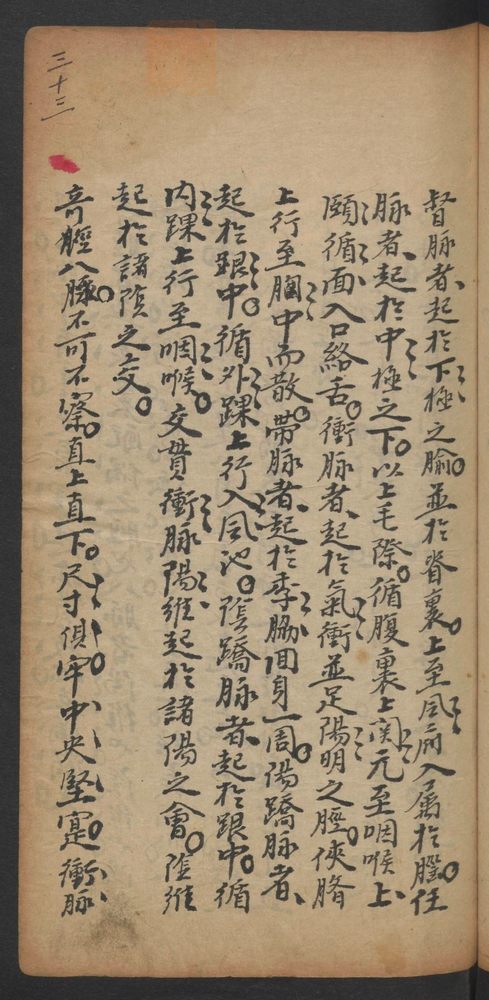 三十三
督脉者、起扵下極之腧。並扵脊裏。上至風府入属扵腦。任
脉者、起扵中極之下。以上毛際。循腹裏上関元至咽喉、上
頤循面入口絡舌。衝脉者、起扵氣衝並足陽明之脛。俠臍
上行至胸中而散。帶脉者、起扵季脇回身一周。陽蹻脉者、
起扵跟中。循外踝上行入風池。隂蹻脉者、起扵跟中。循
内踝上行至咽喉。交貫衝脉陽維起扵諸陽之會。隂維
起扵諸隂之交。
竒脛八脉。不可不察。直上直下。尺寸俱牢。中央堅寔。衝脉